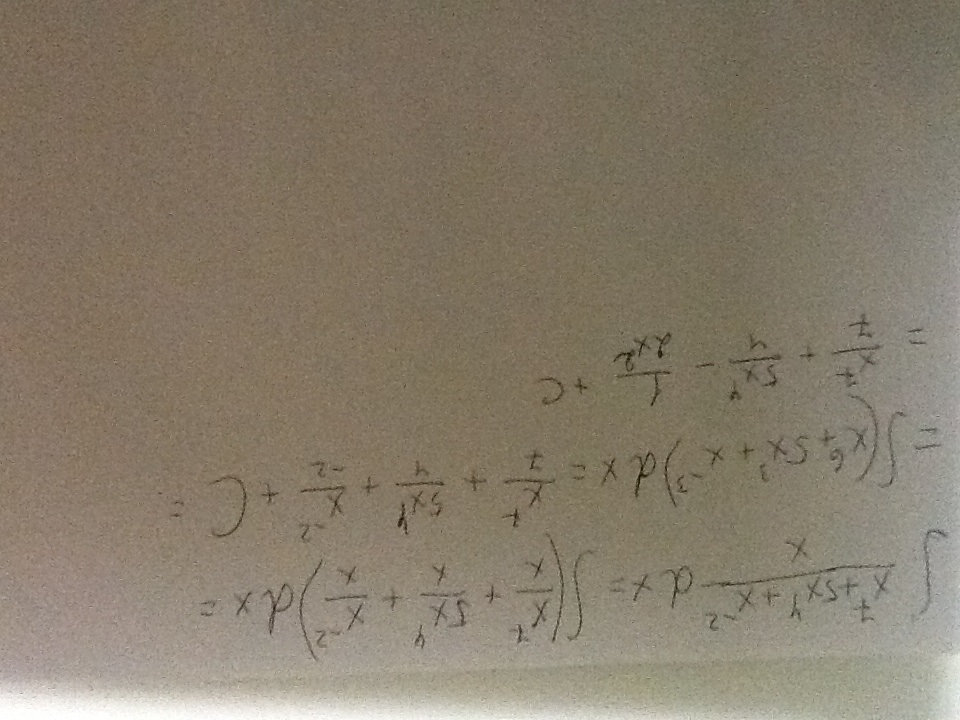 ∫ (x⁷+5x⁴+x⁻²)/x dx = ∫(x⁷/x + 5x⁴/x + x⁻²/x)dx =
= ∫(x⁶+5x³+x⁻³)dx = x⁷/7 + 5x⁴/4 + x⁻²/-2 + C =
= x⁷/7 + 5x⁴/4 - 1/2x² + C